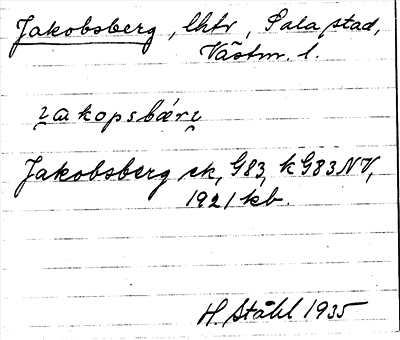 Jakobsberg, lht, Sala stad,
Västm. l.
jakopsbærj
Jakobsberg ek, G83, kG83NV,
1921 kb.
H. Ståhl 1935